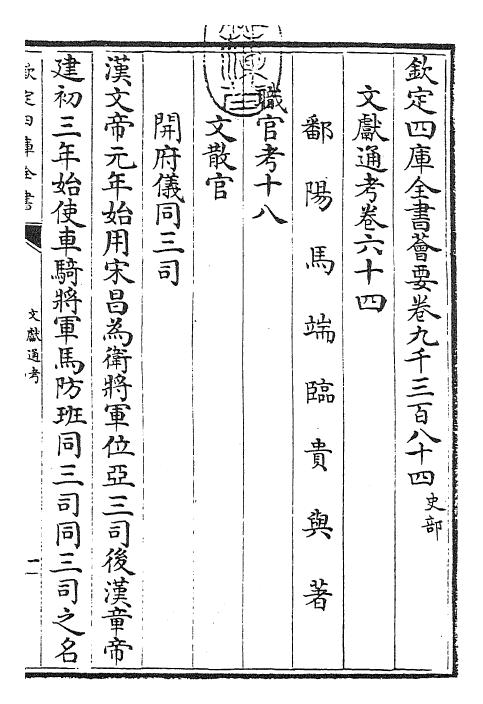 欽定四庫全書薈要卷九千三百八十四 史部
文獻通考卷六十四
鄱陽馬端臨貴與著
職官考十八
文散官
開府儀同三司
漢文帝元年始用宋昌為衛將軍位亞三司後漢章帝
建初三年始使車騎將軍馬防班同三司同三司之名
欽定四庫全書
文獻通考
一